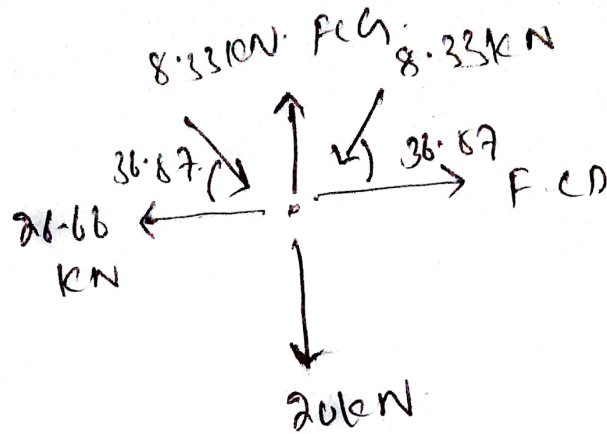 8.33KN. FCG. 8.33KN
36.87. 36.87
26.66 F CD
KN
20KN